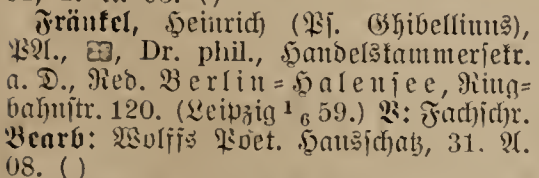 Fränkel, Heinrich (Ps. Ghibellinus),
PA., Dr. phil., Handelskammersekr.
a. D., Red. Berlin=Halensee, Ring=
bahnstr. 120. (Leipzig ¹ ₆ 59.) V: Fachschr.
Bearb: Wolffs Poet. Hausschatz, 31. A.
08. ( )